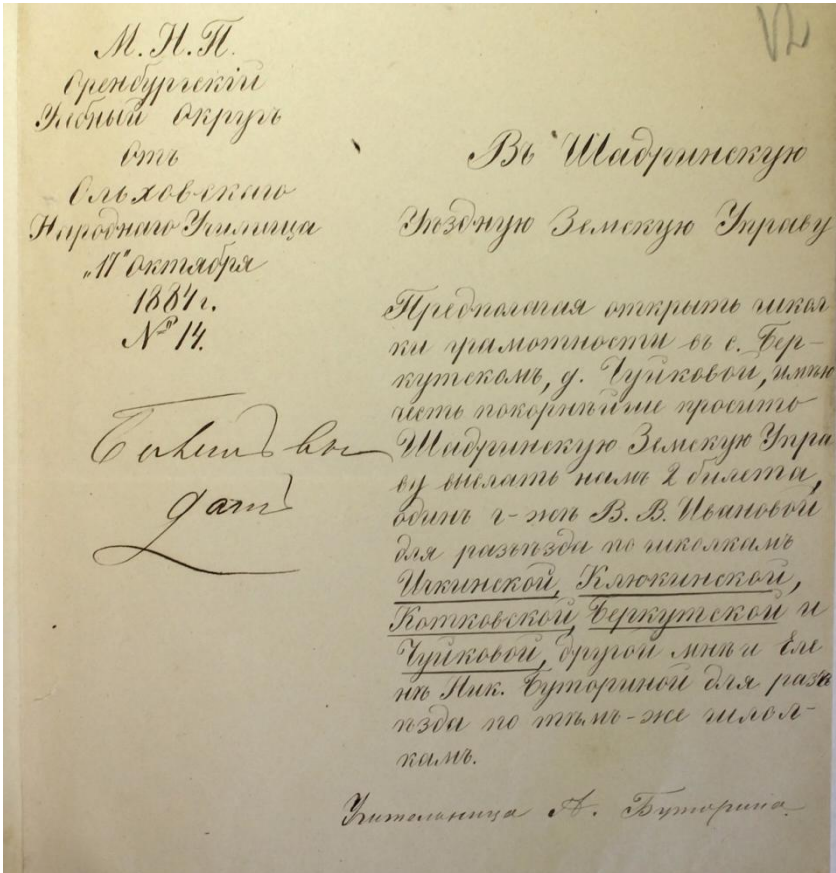 М. Н. П.
Оренбургскій
Учебный Округъ
отъ
Ольховскаго
Народнаго Училища
„17" октября
1884 г.
№ 14.
Въ Шадринскую
Уѣздную Земскую Управу
Предполагая открыть школ
ки грамотности въ с. Бер-
кутскомъ, д. Чуйковой, имѣю
честь покорнѣйше просить
Шадринскую Земскую Упра
ву выслать намъ 2 билета,
одинъ г-жѣ В. В. Ивановой
для разъѣзда по школкамъ
Ичкинской, Клюкинской,
Котковской, Беркутской и
Чуйковой, другой мнѣ и Еле
нѣ Ник. Буториной для разъ
ѣзда по тѣмъ-же школ-
камъ.
Учительница А. Буторина.
Билетъ вы
данъ